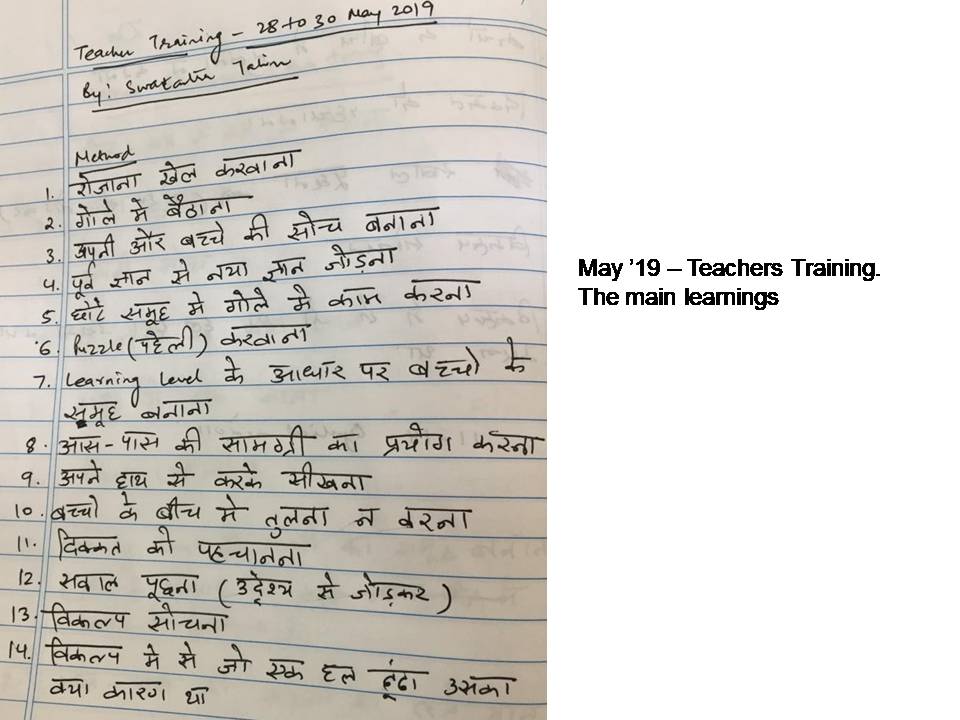 Teacher Training - 28 to 30 May 2019
By: Swatantra Talim
Method
1. रोजाना खेल करवाना
2. गोले मे बैठाना
3. अपनी और बच्चे की सोच बनाना
4. पूर्व ज्ञान से नया ज्ञान जोड़ना
5. छोटे समूह मे गोले मे काम करना
6. Puzzle (पहेली) करवाना
7. Learning Level के आधार पर बच्चो के
समूह बनाना
8. आस-पास की सामग्री का प्रयोग करना
9. अपने हाथ से करके सीखना
10. बच्चो के बीच मे तुलना न करना
11. दिक्कत को पहचानना
12. सवाल पूछना (उद्देश्य से जोड़कर)
13. विकल्प सोचना
14. विकल्प मे से जो एक हल ढूंढा उसका
क्या कारण था
May ’19 – Teachers Training.
The main learnings